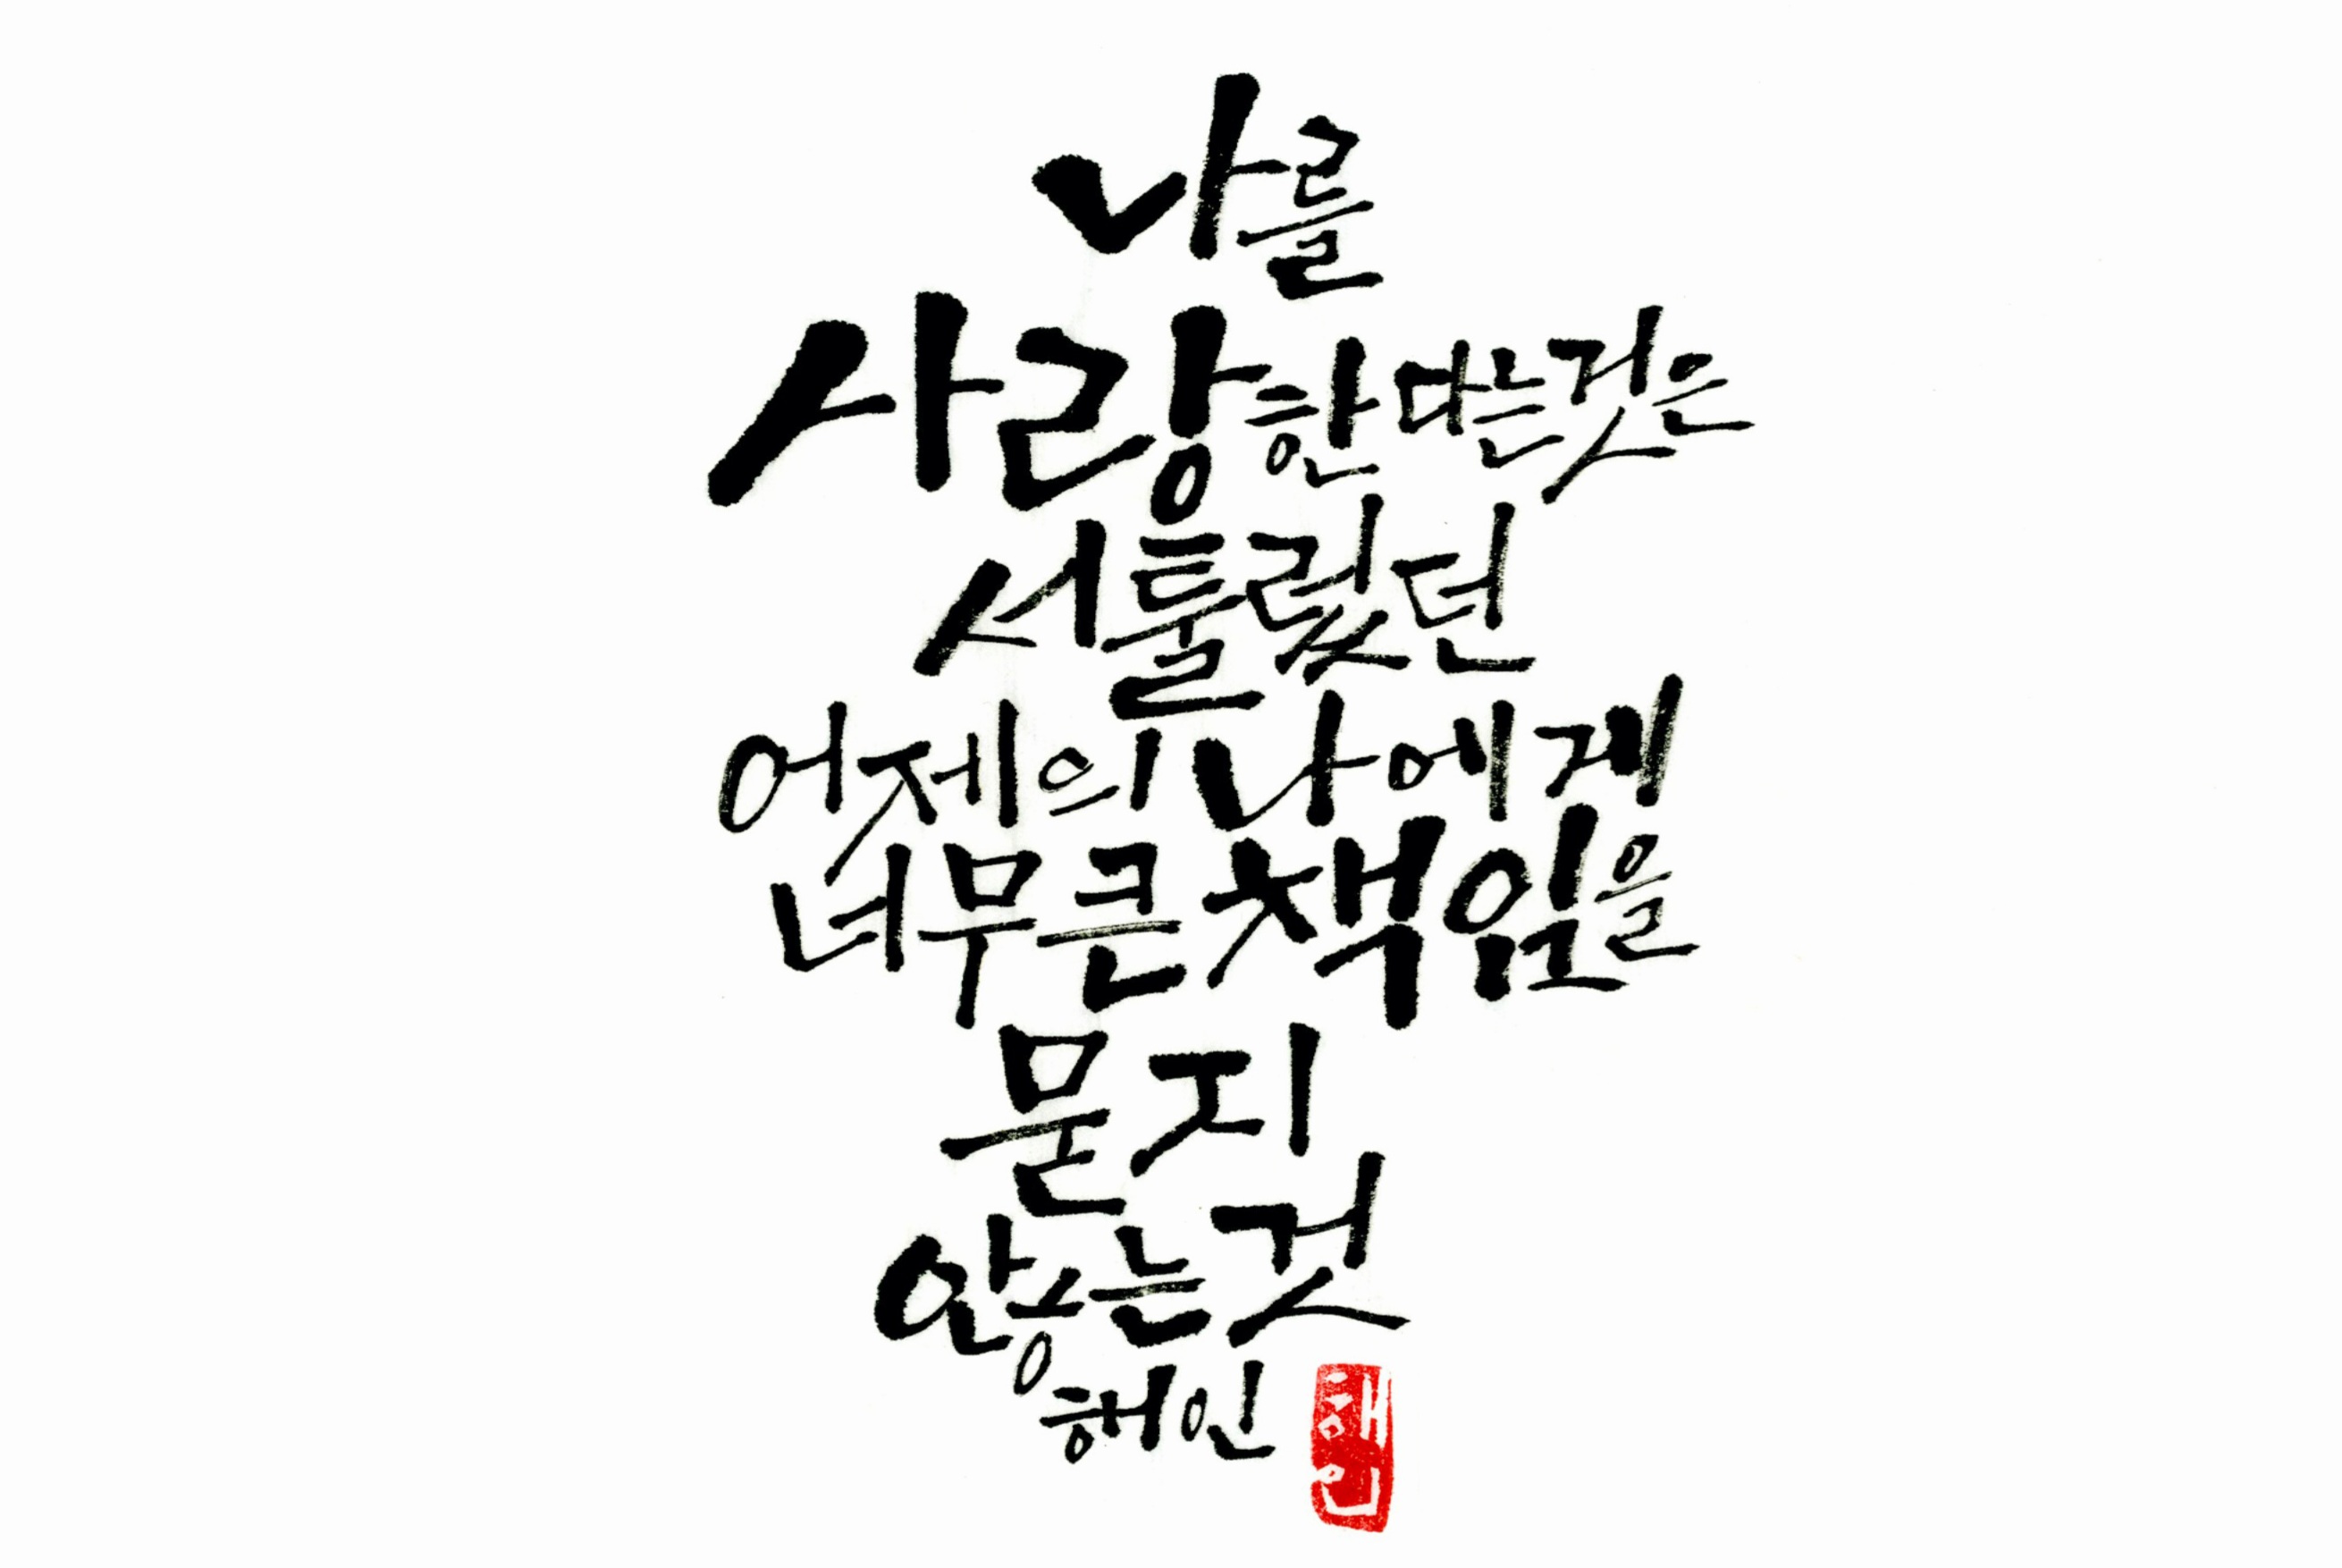 나를
사랑한다는것은
서툴렀던
어제의 나에게
너무 큰 책임을
묻지
않는 것
해인
해인